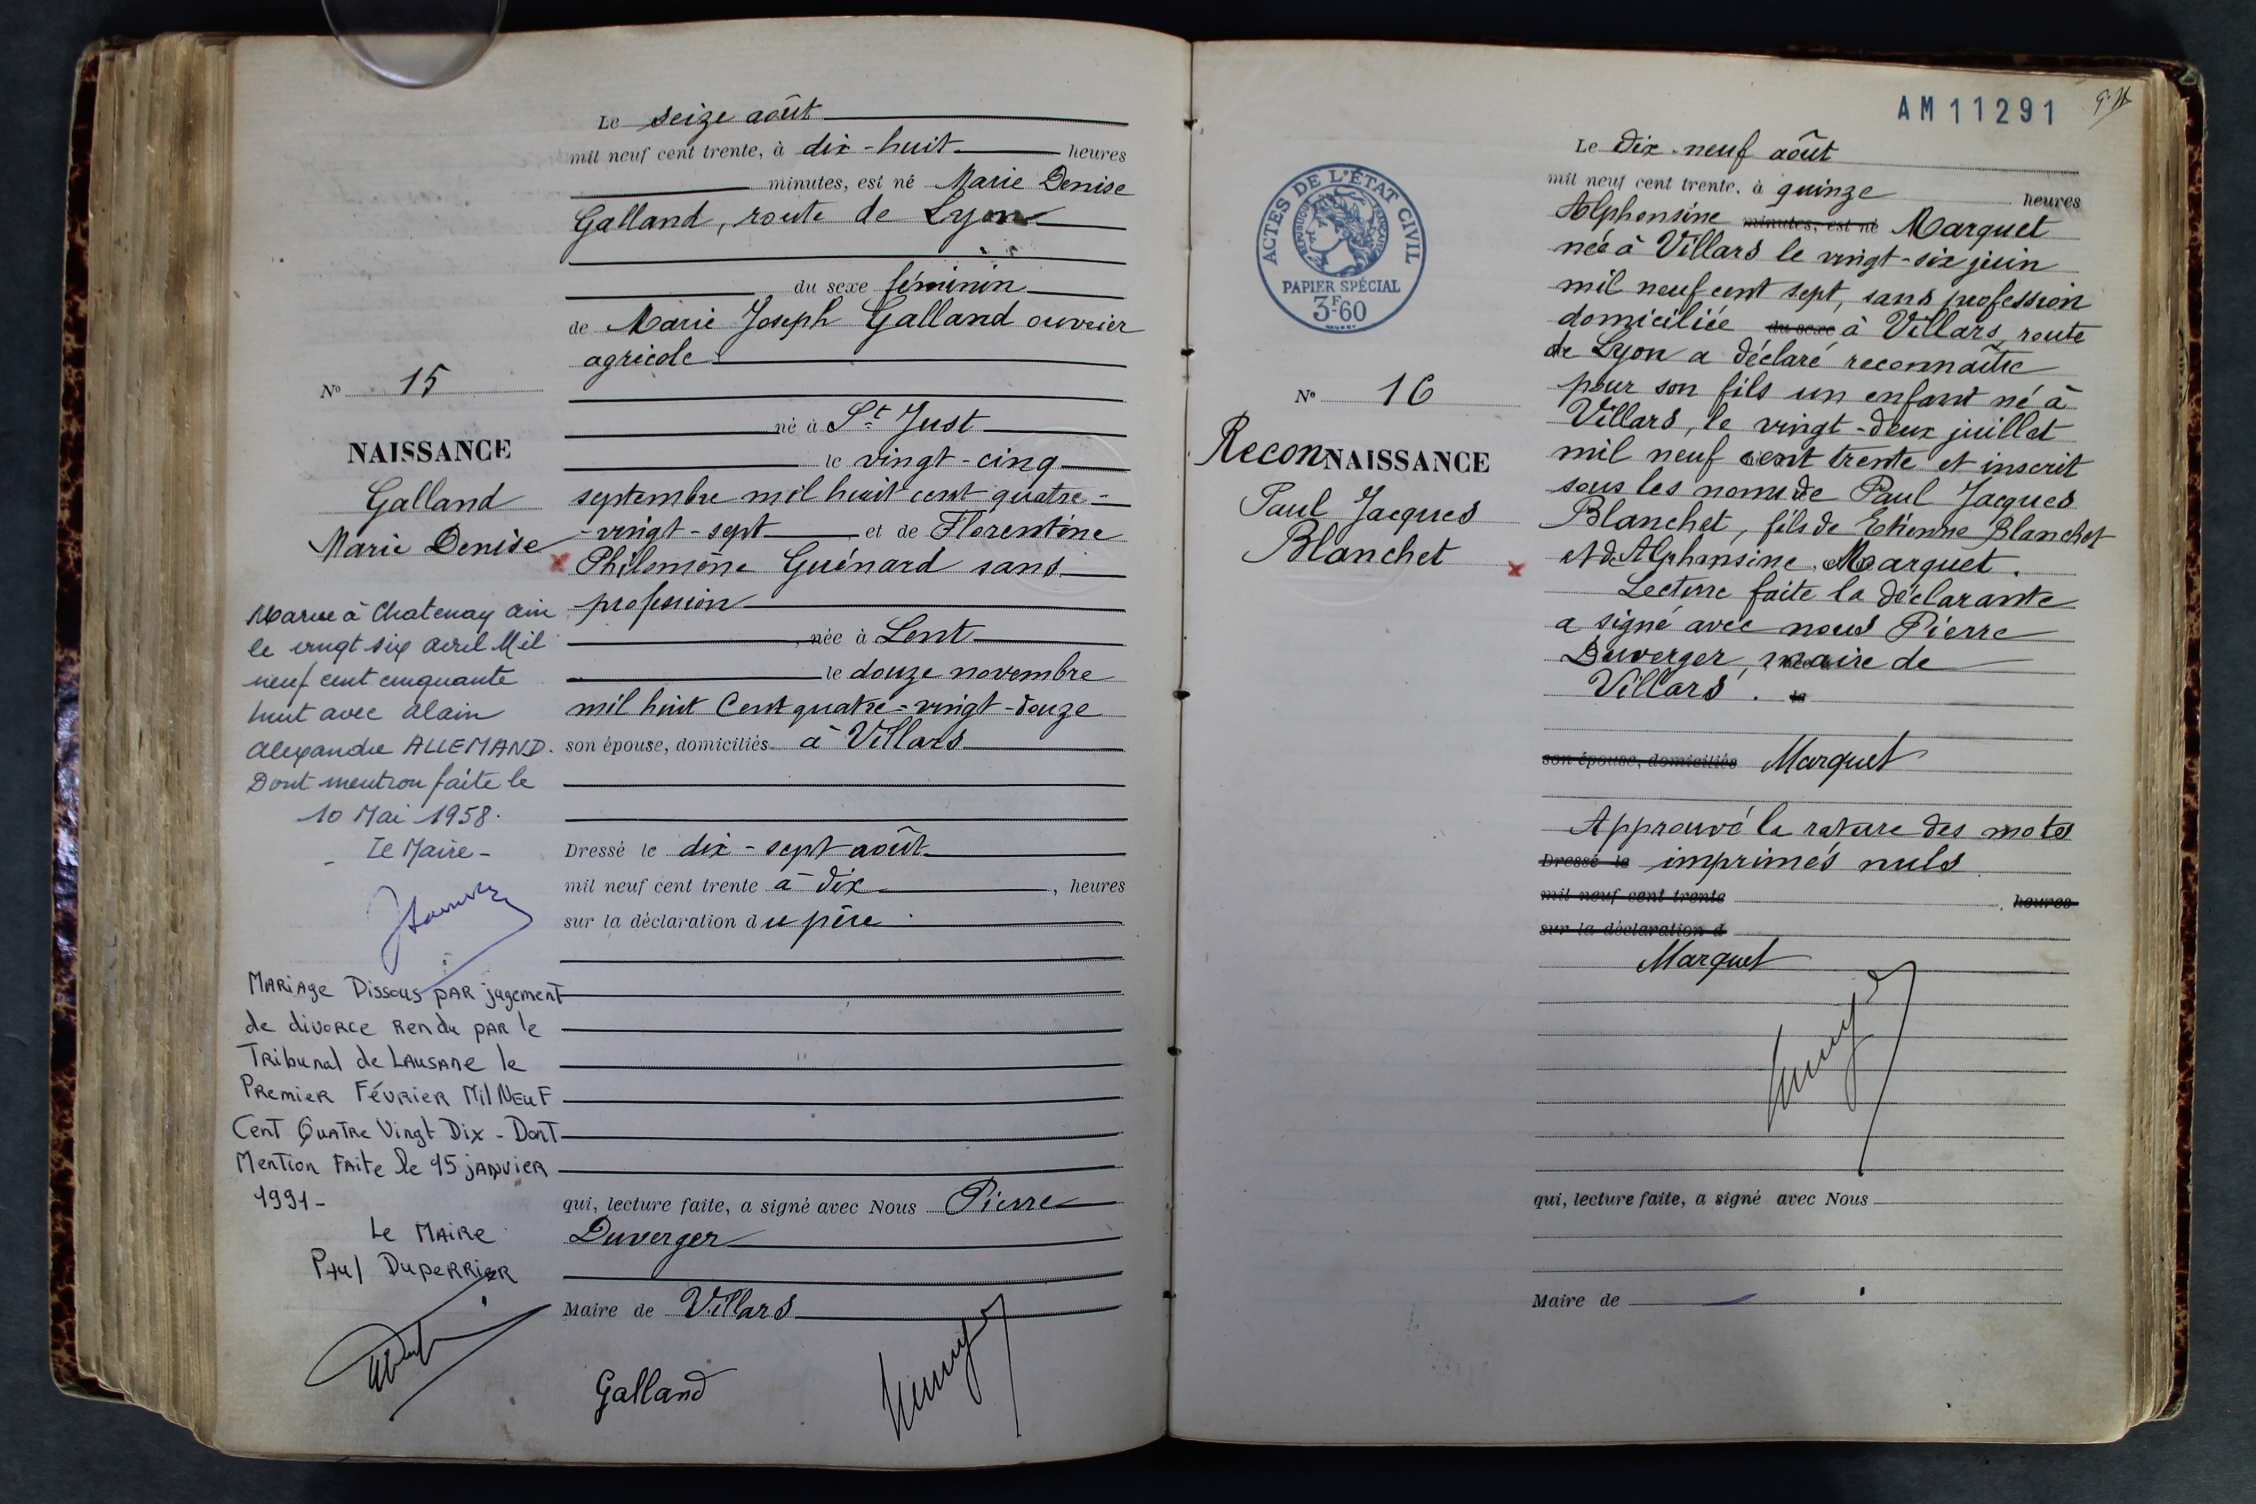 Le seize août
mil neuf cent trente, à dix-huit heures
minutes, est né Marie Denise
Galland, route de Lyon
du sexe féminin
de Marie Joseph Galland ouvrier
agricole
né à St Just
le vingt-cinq
septembre mil huit cent quatre-
-vingt-sept et de Florentine
Philomène Guénard sans
profession
, née à Lent
le douze novembre
mil huit Cent quatre-vingt-douze
son épouse, domiciliés à Villars
Dressé le dix-sept août
mil neuf cent trente à dix , heures
sur la déclaration du père
qui, lecture faite, a signé avec Nous Pierre
Duverger
Maire de Villars
Galland
No 15
NAISSANCE
Galland
Marie Denise
Mariée à Chatenay Ain
le vingt six avril Mil
neuf cent cinquante
huit avec Alain
Alexandre ALLEMAND.
Dont mention faite le
10 Mai 1958.
Le Maire-
MARiAge Dissous PAR jugement
de divorce Rendu PAR le
Tribunal de LAusAne le
Premier Février Mil Neuf
Cent Quatre Vingt Dix - Dont
Mention Faite le 15 jANvier
1991-
Le MAire
Paul DuperRieR
AM11291
ACTES DE L'ÉTAT CIVIL
RÉPUBLIQUE FRANÇAISE
PAPIER SPÉCIAL
3F60
No 16
ReconNAISSANCE
Paul Jacques
Blanchet
Le dix-neuf août
mil neuf cent trente, à quinze heures
Alphonsine minutes, est né Marquet
née à Villars le vingt-six juin
mil neuf cent sept, sans profession
domiciliée du sexe à Villars, route
de Lyon a déclaré reconnaître
pour son fils un enfant né à
Villars, le vingt-deux juillet
mil neuf cent trente et inscrit
sous les noms de Paul Jacques
Blanchet, fils de Etienne Blanchet
et de Alphonsine Marquet.
Lecture faite la déclarante
a signé avec nous Pierre
Duverger, maire de
Villars. le
son épouse, domiciliés Marquet
Approuvé la rature des mots
Dressé le imprimés nuls
mil neuf cent trente , heures
sur la déclaration d
Marquet
qui, lecture faite, a signé avec Nous
Maire de